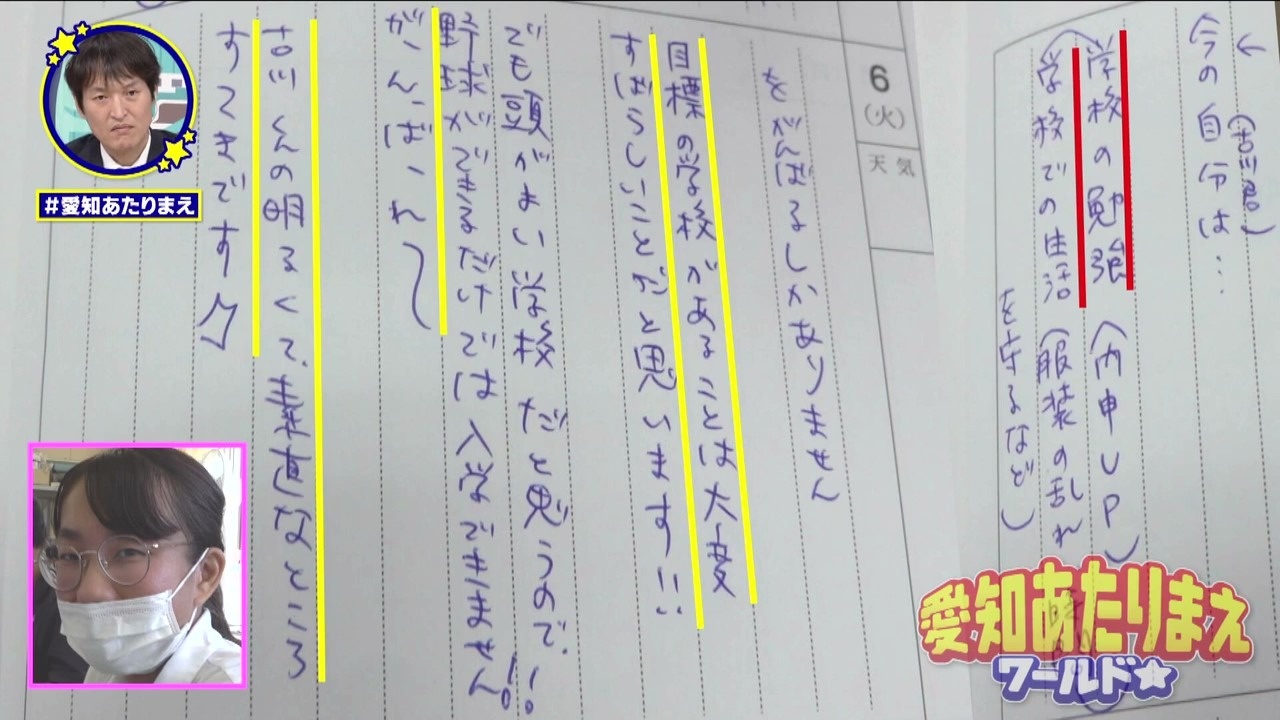 (古川君)
← 今の自分は…
学校の勉強 (内申UP)
(学校での生活 (服装の乱れ
を守るなど)
6
(火)
天気
をがんばるしかありません
目標の学校があることは大変
すばらしいことだと思います!!
でも頭がよい学校だと思うので、!
野球ができるだけでは入学できません!!
がんばれ〜
古川くんの明るくて、素直なところ
すてきです
#愛知あたりまえ
愛知あたりまえ
ワールド☆